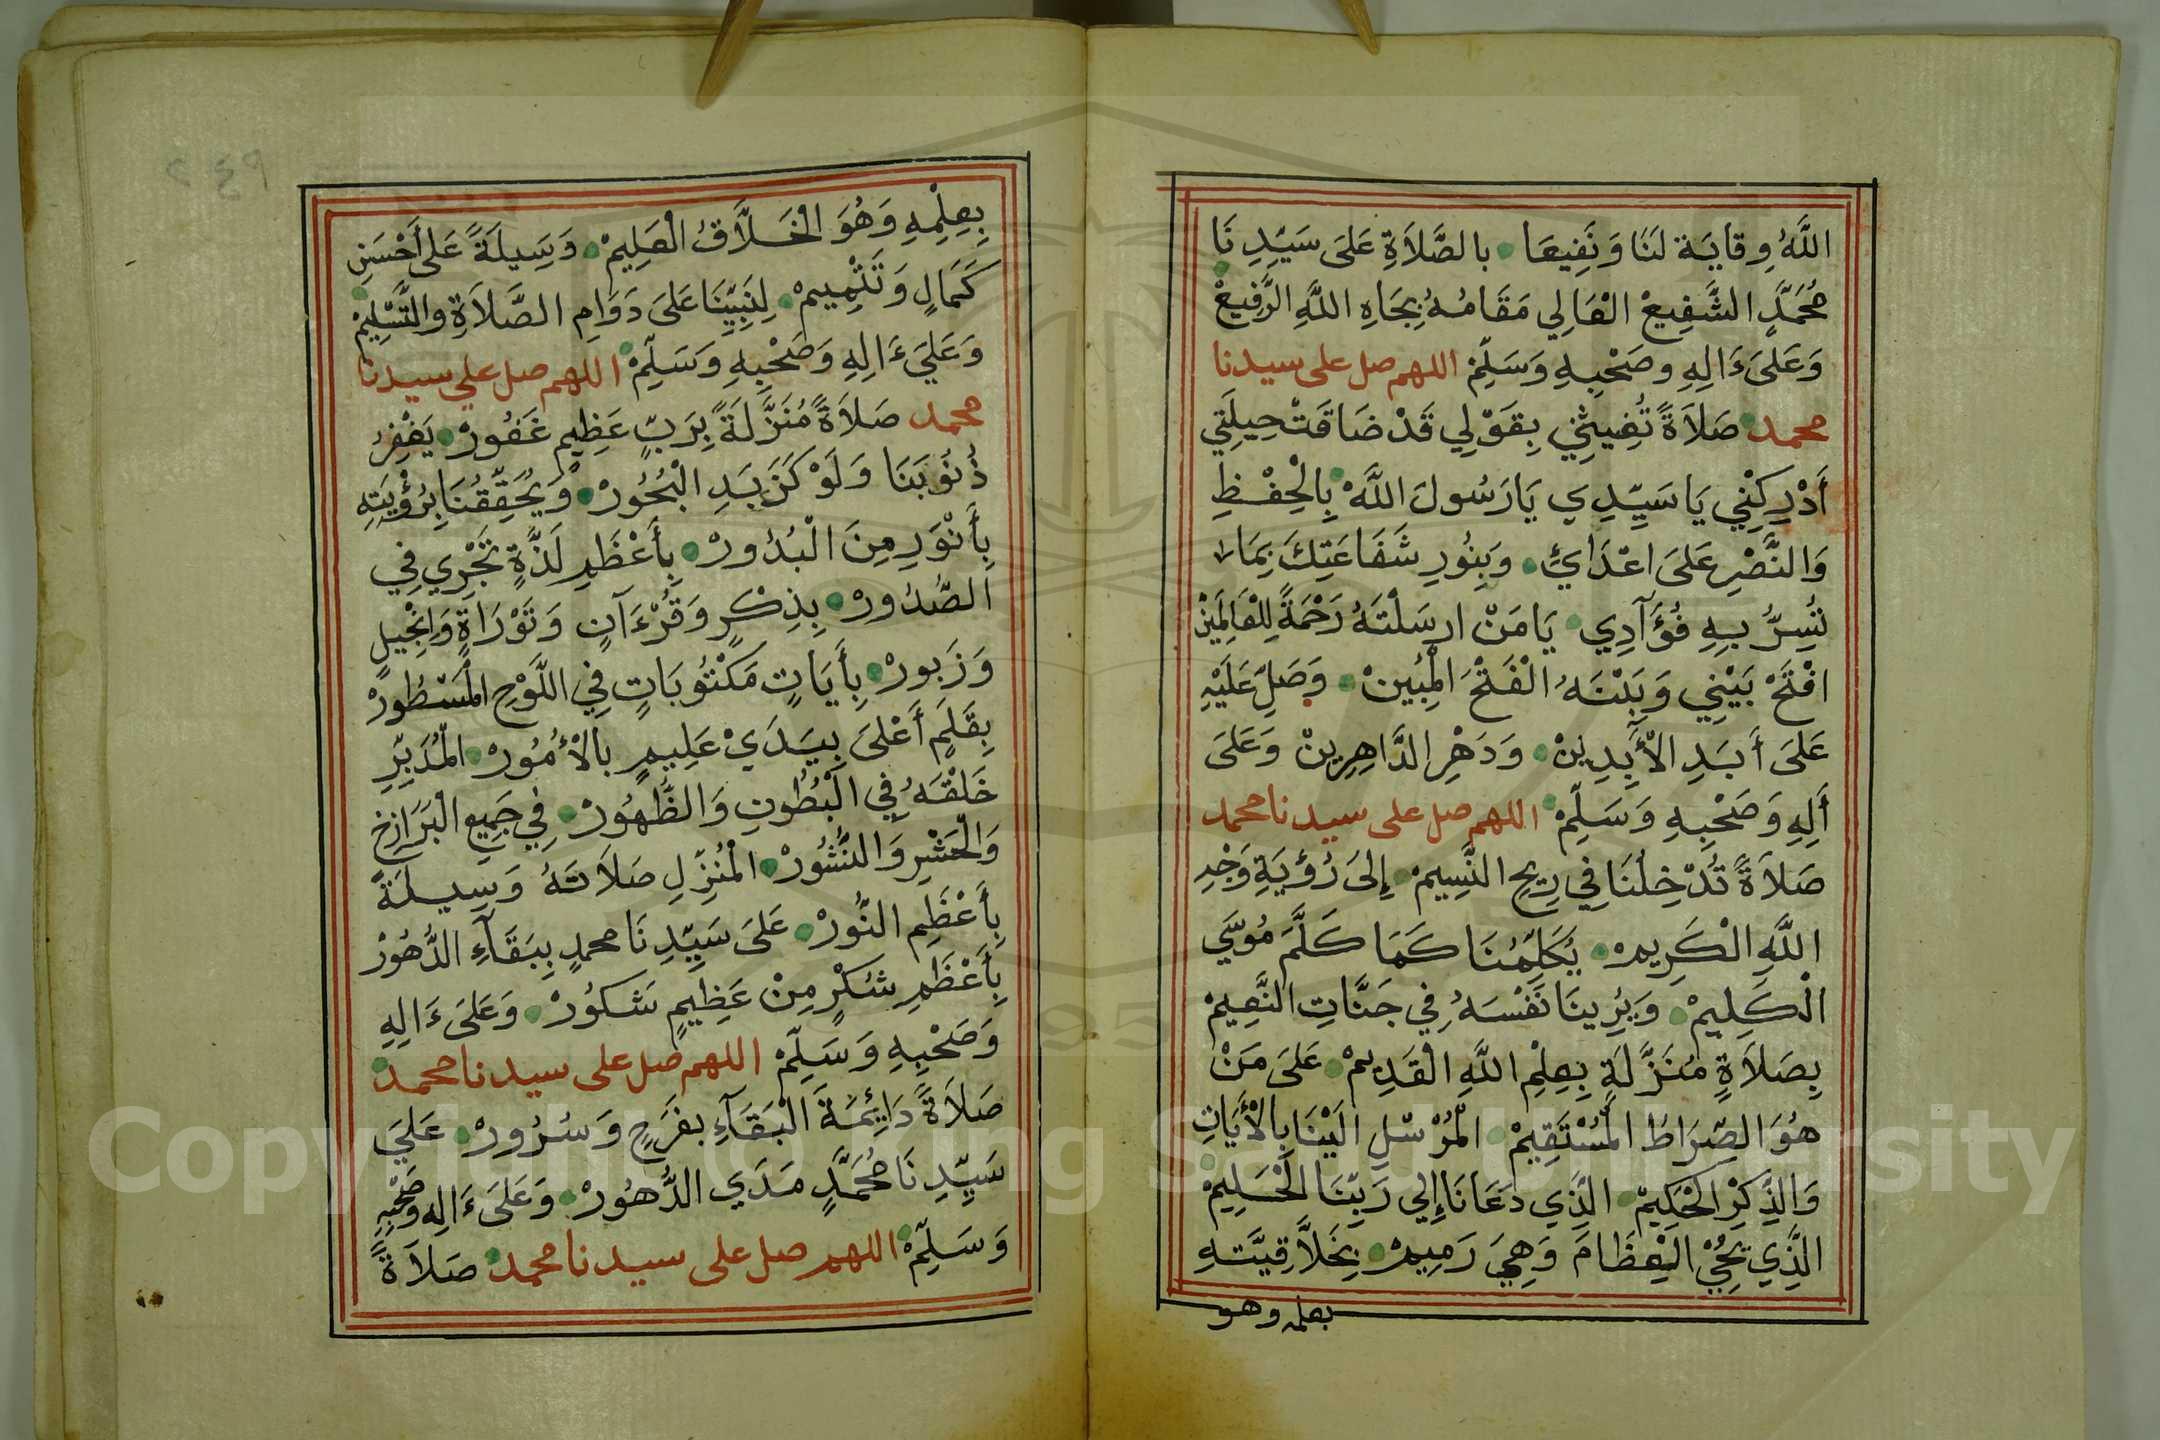 اللَّهُ وِقايَة لَنَا وَنَفِيعَا بالصَّلاَةِ عَلىَ سَيِّدِنَا
مُحَمَّدٍ الشَّفِيعْ الْعَالِي مَقَامُهُ بِجَاهِ اللَّهِ الرَّفِيعْ
وَعَلىَ ءَالِهِ وصَحْبِهِ وَسَلِّمْ اللهم صل على سيدنا
محمد صَلاَةً تُغِيثُنِي بِقَوْلِي قَدْ ضَاقَتْ حِيلَتِي
أَدْرِكْنِي يَا سَيِّدِي يَا رَسُولَ اللَّهْ بِالْحِفْظِ
وَالنَّصْرِ عَلىَ اعْدَائِي وَبِنُورِ شَفَاعَتِكَ بِمَا
تُسِرُّ بِهِ فُؤَآدِي يَا مَنْ ارسَلْتَهُ رَحْمَةً لِلْعَالَمِينْ
افْتَحْ بَيْنِي وَبَيْنَهُ الْفَتْحَ الْمُبِينْ وَصَلِّ عَلَيْهِ
عَلىَ أَبَدِ الْأَبِدِينْ وَدَهْرِ الدَّاهِرِينْ وَعَلىَ
أَلِهِ وَصَحْبِهِ وَسَلِّمْ اللهم صل على سيدنا محمد
صَلاَةً تُدْخِلُنَا فِي رِيحِ النَّسِيمْ إِلىَ رُؤْيَةِ وَجْهِ
اللَّهِ الْكَرِيمْ يُكَلِّمُنَا كَمَا كَلَّمَ مُوسَي
الْكَلِيمْ وَيُرِينَا نَفْسَهُ فِي جَنَّاتِ النَّعِيمْ
بِصَلاَةٍ مُنَزَّلَةٍ بِعِلْمِ اللَّهِ الْقَدِيمْ عَلىَ مَنْ
هُوَ الصِّرَاطُ الْمُسْتَقِيمْ الْمُرْسَلِ الَيْنَا بِالْأَيَاتِ
وَالذِّكْرِ الْحَكِيمْ الَّذِي دَعَانَا إِلي رَبِّنَا الْحَلِيمْ
الَّذِي يُحْيِ الْعِظَامَ وَهِيَ رَمِيمْ بِخَلاَّقِيَّتِهِ
بعلمه وهو
بِعِلْمِهِ وَهُوَ الْخَلاَّقُ الْعَلِيمْ وَسِيلَةً عَلىَ أَحْسَنِ
كَمَالٍ وَتَتْمِيمْ لِنَبِيِّنَا عَلىَ دَوَامِ الصَّلاَةِ والتَّسْلِيمْ
وَعَلَيَ ءَالِهِ وَصَحْبِهِ وَسَلِّمْ اللهم صل علي سيدنا
محمد صَلاَةً مُنَزَّلَةً بِرَبٍّ عَظِيمٍ غَفُورْ يَغْفِرُ
ذُنُوبَنَا وَلَوْ كَزَبَدِ الْبُحُورْ وَيُحَقِّقُنَا بِرُؤْيَتِهِ
بِأَنْوَرِ مِنَ الْبُدُورْ بِأَعْظَمِ لَذَّةٍ تَجْرِي فِي
الصُّدُورْ بِذِكْرٍ وَقُرْءَآنٍ وَتَوْرَاةٍ وَانْجِيلٍ
وَزَبورْ بِأَيَاتٍ مَكْتُوبَاتٍ فِي اللَّوْحِ الْمَسْطُورْ
بِقَلَمٍ أَعْلىَ بِيَدَيْ عَلِيمٍ بالْأُمُورْ الْمُدَبِّرِ
خَلْقَهُ فِي الْبُطُونِ وَالظُّهُورْ فِي جَمِيعِ الْبَرَازِخِ
وَالْحَشْرِ وَالنُّشُورْ الْمُنَزِّلِ صَلاَتَهُ وَسِيلَةً
بِأَعْظَمِ النُّورْ عَلىَ سَيِّدِنَا محمدٍ بِبَقَآءِ الدُّهُورْ
بِأَعْظَمِ شُكْرٍ مِنْ عَظِيمٍ شَكُورْ وَعَلىَ ءَالِهِ
وَصَحْبِهِ وَسَلِّمْ اللهم صل على سيدنا محمد
صَلاَةً دَائِمَةَ الْبَقَآءِ بفَرَحٍ وَسُرُورْ عَلَيَ
سَيِّدِنَا مُحَمَّدٍ مَدَي الدُّهُورْ وَعَلىَ ءَالِهِ وَصَحْبِهِ
وَسَلِّمْ اللهم صل على سيدنا محمد صَلاَةً
Copyright © King Saud University